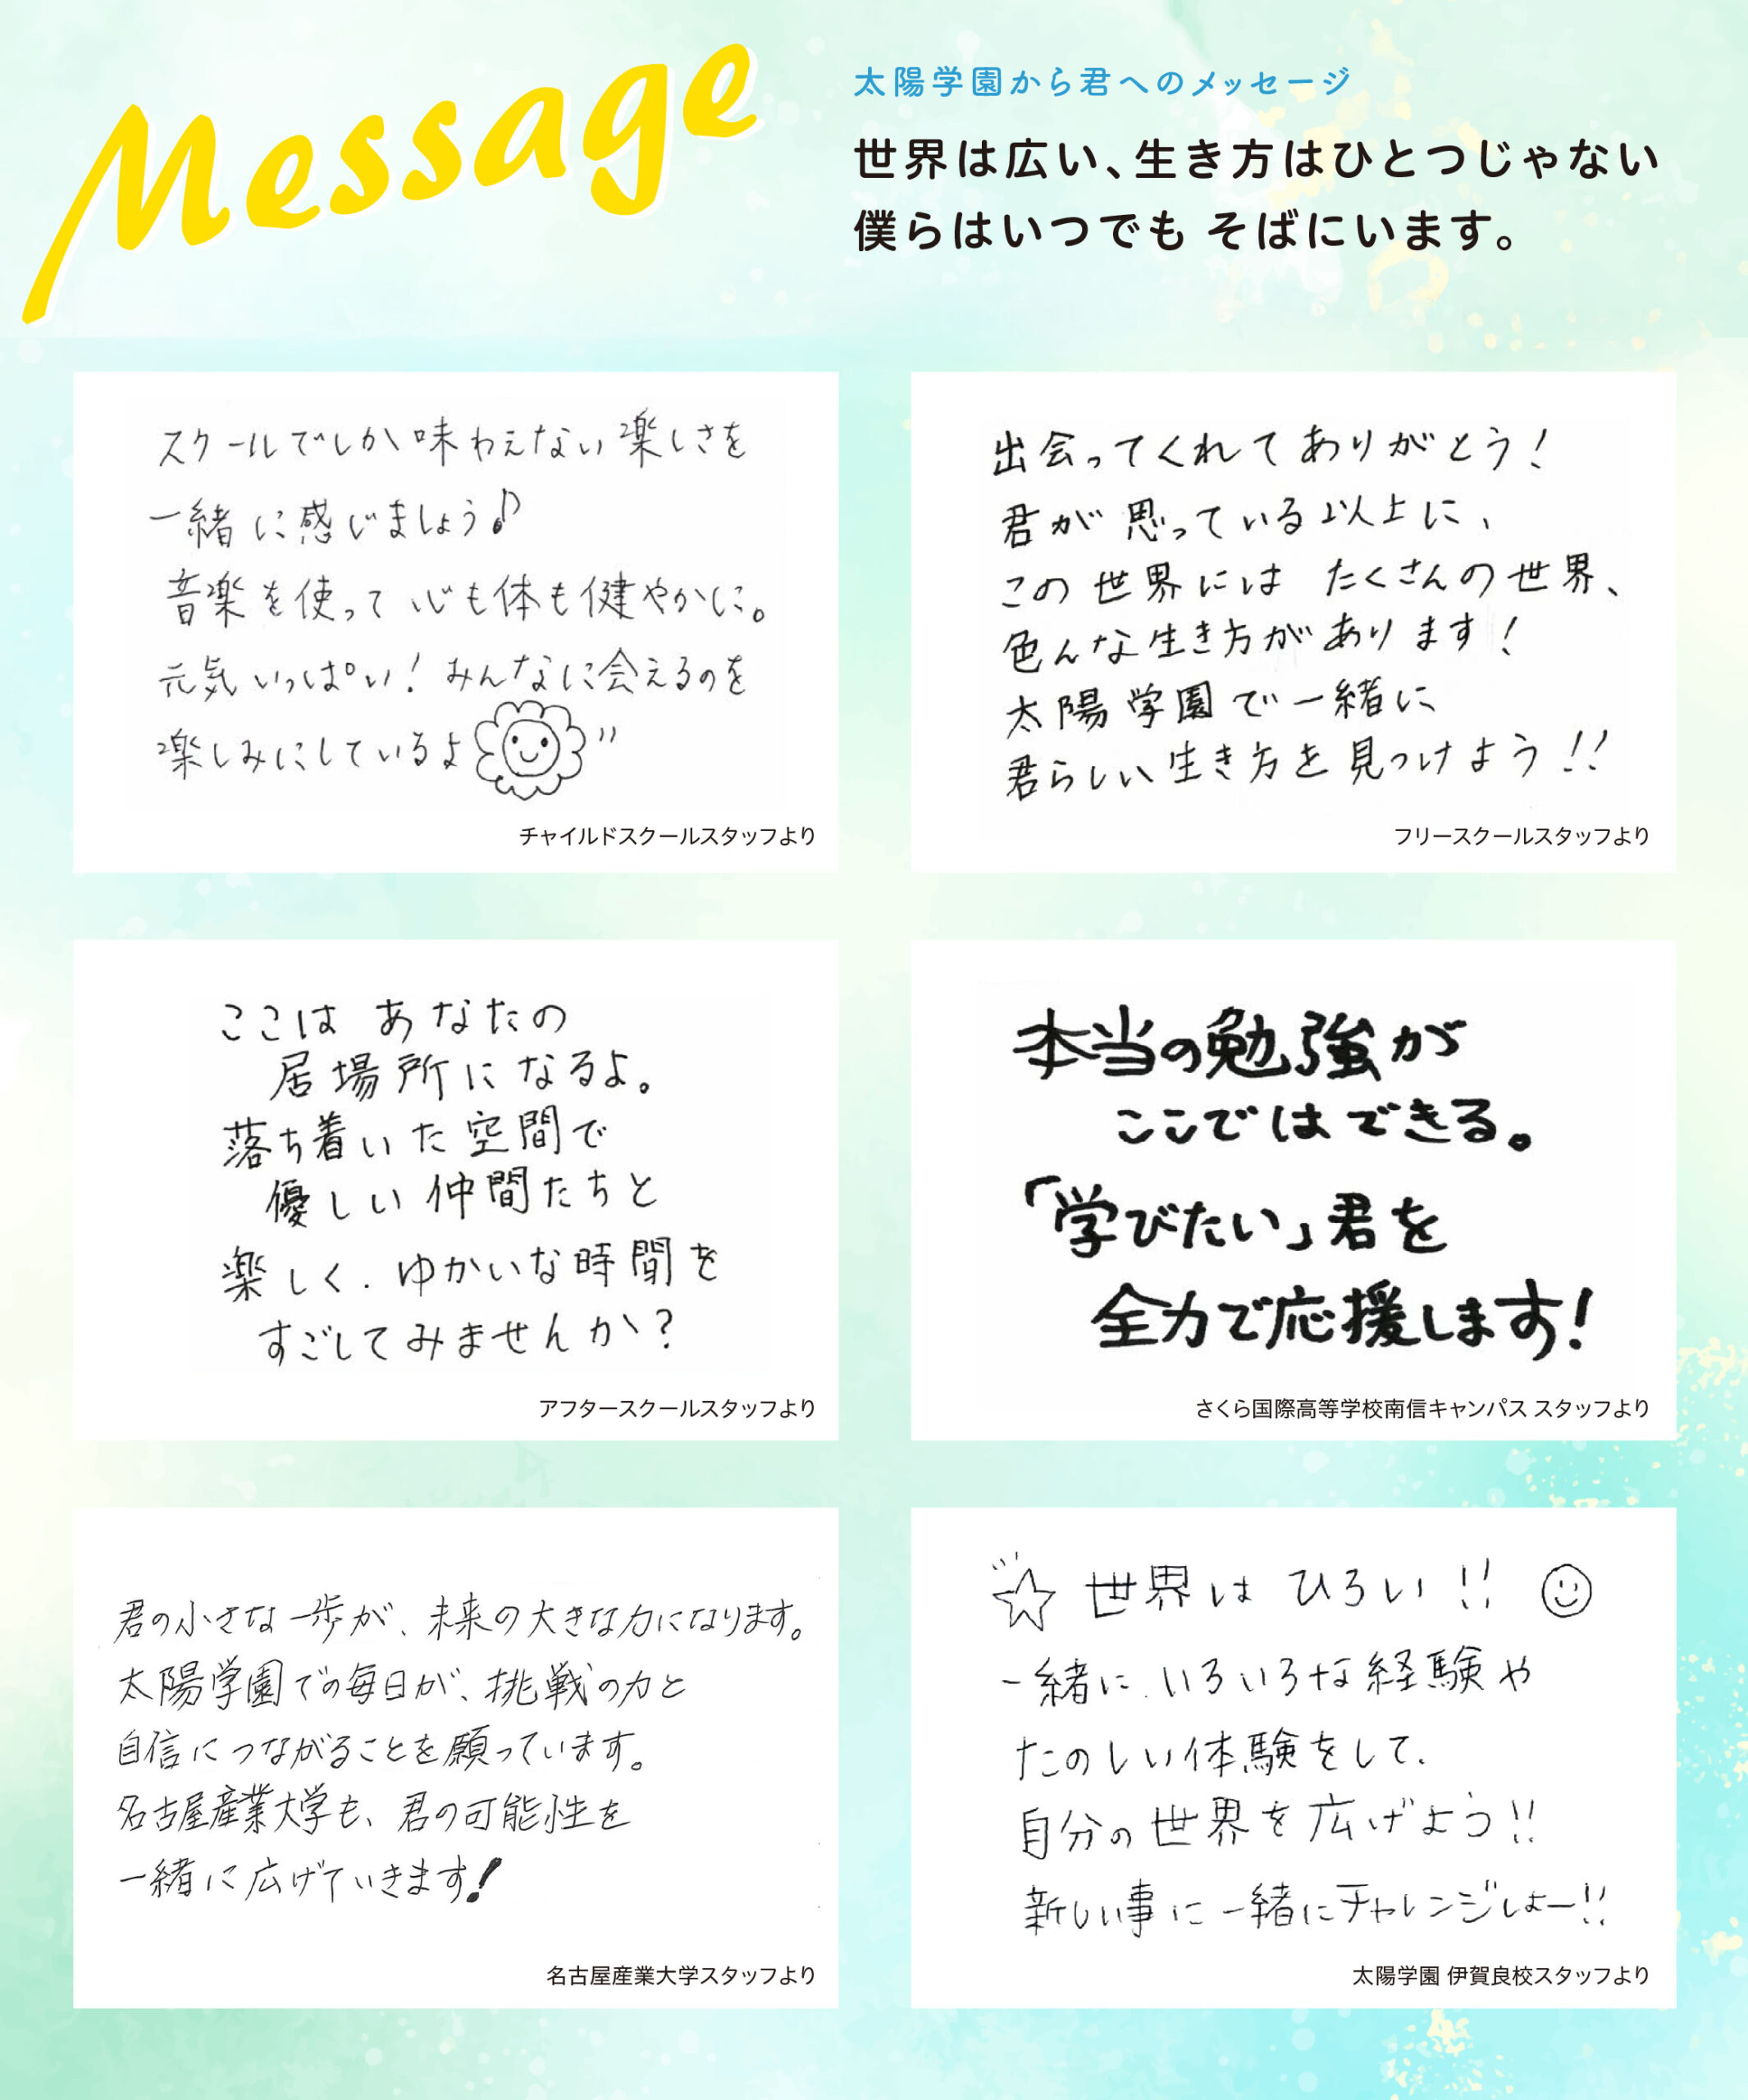 Message
太陽学園から君へのメッセージ
世界は広い、生き方はひとつじゃない
僕らはいつでも そばにいます。
スクールでしか味わえない楽しさを
一緒に感じましょう♪
音楽を使って心も体も健やかに。
元気いっぱい！みんなに会えるのを
楽しみにしているよ
チャイルドスクールスタッフより
出会ってくれてありがとう！
君が思っている以上に、
この世界には たくさんの世界、
色んな生き方があります！
太陽学園で一緒に
君らしい生き方を見つけよう!!
フリースクールスタッフより
ここは あなたの
居場所になるよ。
落ち着いた空間で
優しい仲間たちと
楽しく、ゆかいな時間を
すごしてみませんか？
アフタースクールスタッフより
本当の勉強が
ここではできる。
「学びたい」君を
全力で応援します！
さくら国際高等学校南信キャンパス スタッフより
君の小さな一歩が、未来の大きな力になります。
太陽学園での毎日が、挑戦の力と
自信につながることを願っています。
名古屋産業大学も、君の可能性を
一緒に広げていきます！
名古屋産業大学スタッフより
☆ 世界は ひろい!! ☺
一緒に、いろいろな経験や
たのしい体験をして、
自分の世界を広げよう!!
新しい事に一緒にチャレンジしよー!!
太陽学園 伊賀良校スタッフより